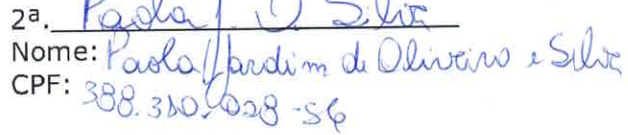 2ª. Paola J. O Silva
Nome: Paola Jardim de Oliveira e Silva
CPF: 388.310.028-56